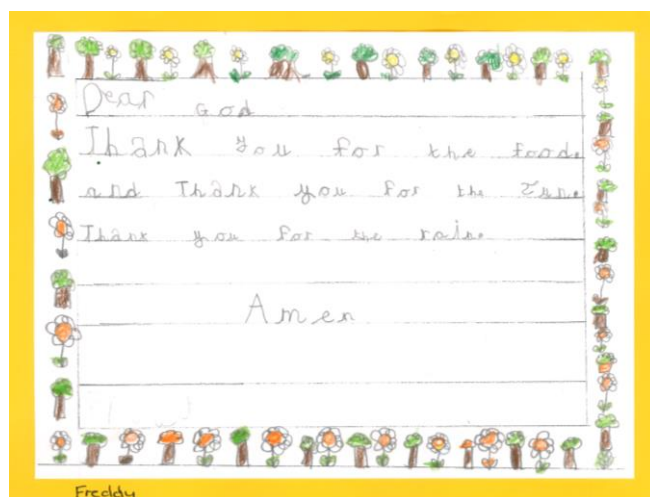 Dear God
Thank you for the food.
and Thank you for the Sune
Thank you for the raine
Amen
Freddy